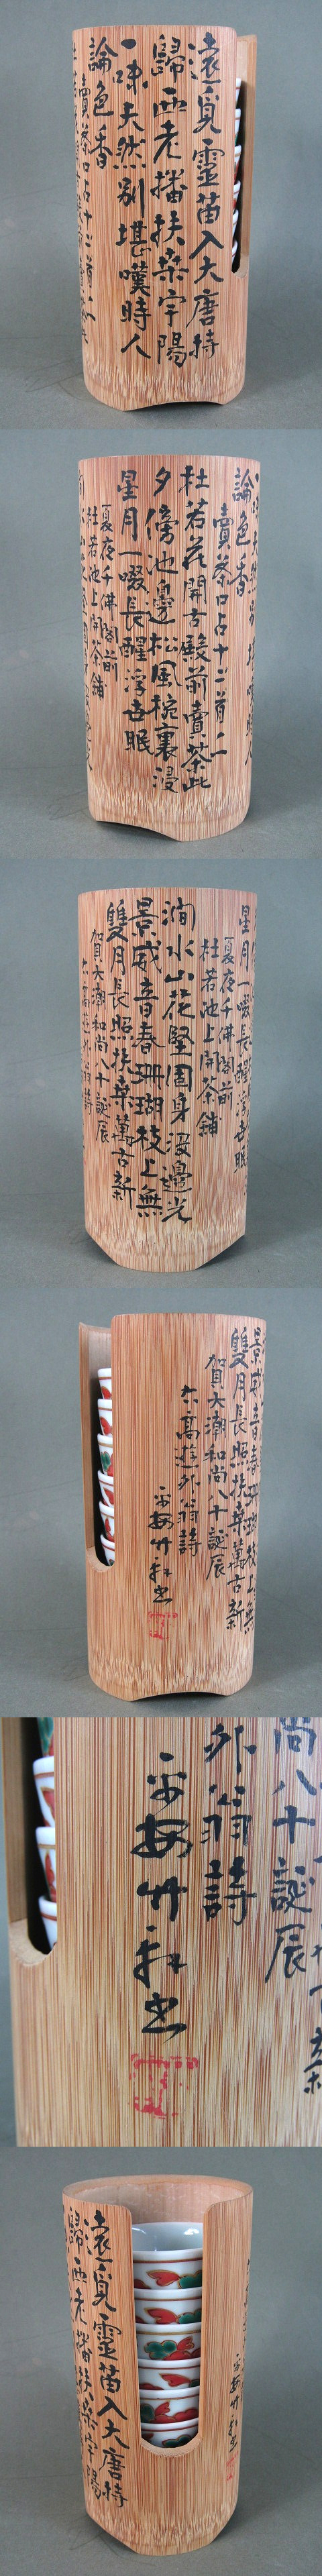 遠覓靈苗入大唐持
歸西老播扶桑宇陽
一味天然別堪嘆時人
論色香
賣茶口占十二首ノ一
杜若花開古殿前賣茶此
夕傍池邊松風椀裏浸
星月一啜長醒浮世眠
夏夜千佛閣前
杜若池上開茶鋪
澗水山花堅固身沒邊光
景威音春珊瑚枝上無
雙月長照扶桑萬古新
賀大潮和尚八十誕辰
右高遊外翁詩
平安竹軒書